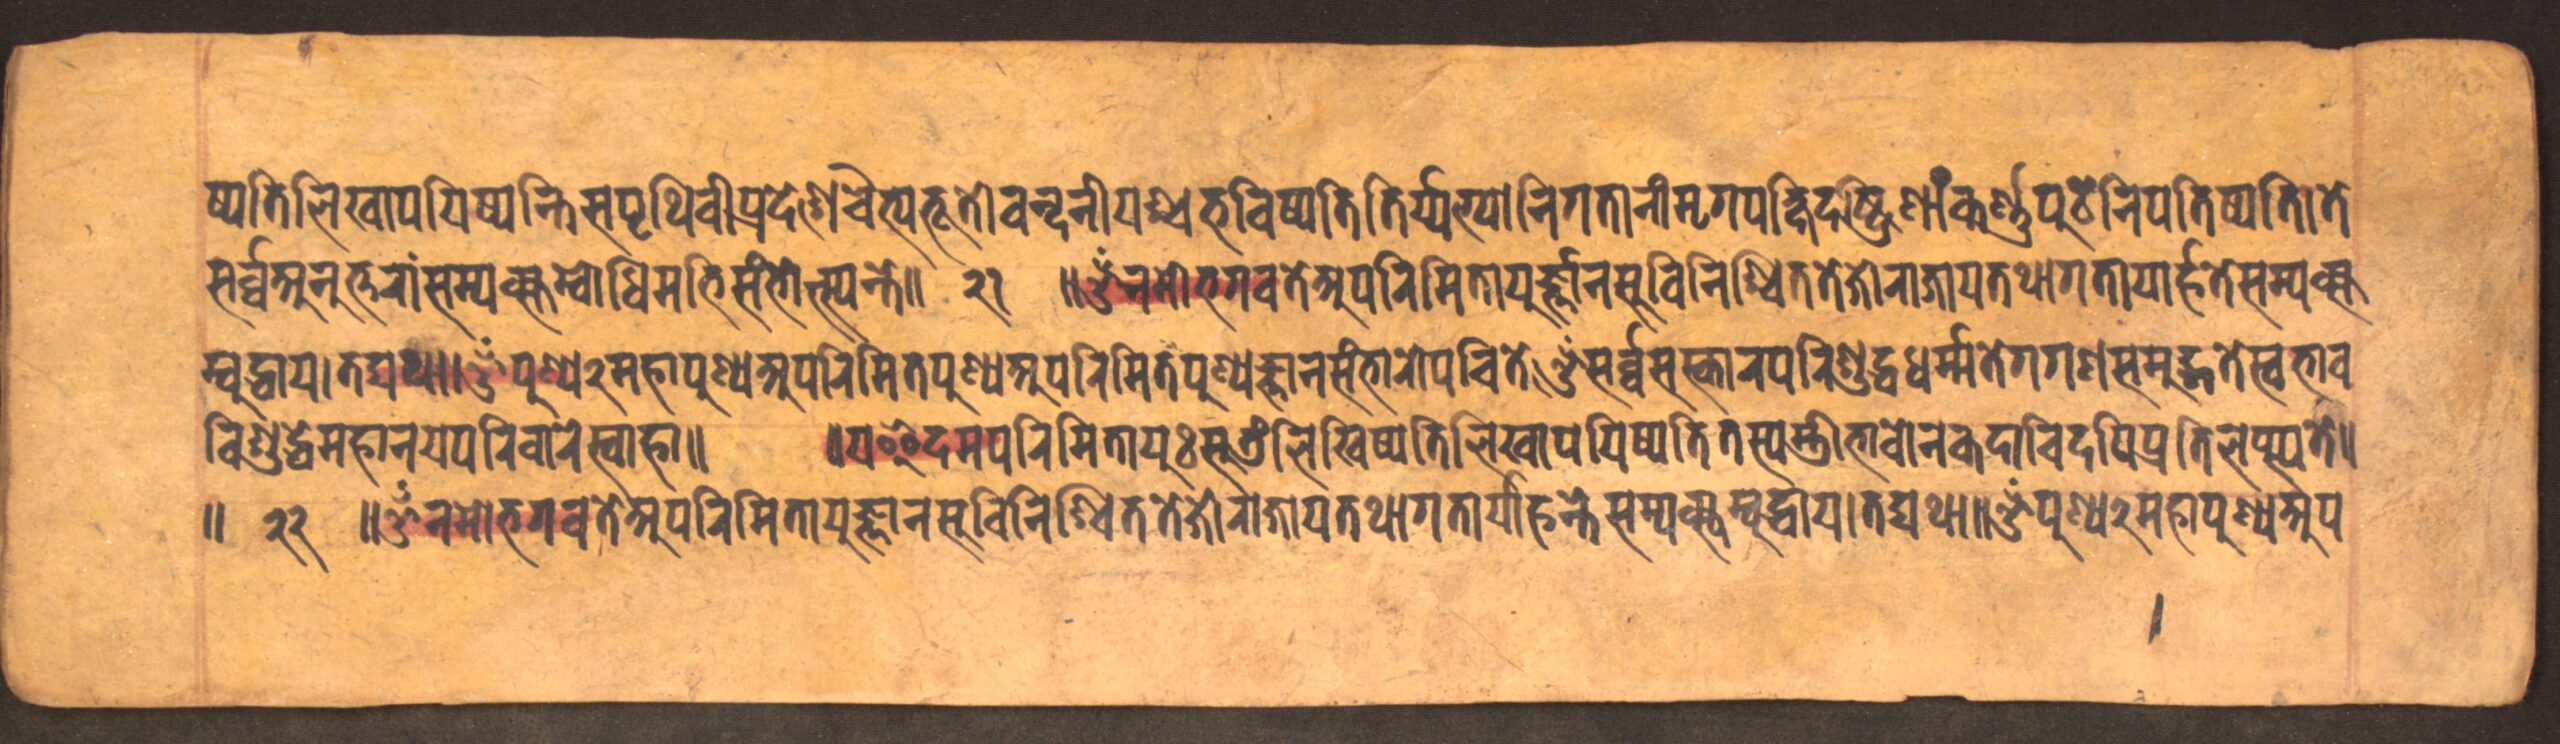 ष्यतिलिखापयिष्यन्तिसपृथिवीप्रदेशेचैत्यभूतोवन्दनीयश्चभविष्यतितिर्य्यग्योनिगतानीमृगपक्षिदंष्ट्रिणांकर्ण्णपुठेनिपतिष्यति।ते
सर्व्वेअनुत्तरांसम्यक्सम्बोधिमभिसंभोत्स्यन्ते॥ २१ ॥ॐनमोभगवतेअपरिमितायुर्ज्ञानसूविनिश्चिततेजोराजायतथागतायार्हतेसम्यक्स
म्बुद्धाय।तद्यथा॥ॐपुण्य२महापुण्यअपरिमितपुण्यअपरिमितपुण्यज्ञानसंभारोपचितेॐसर्व्वसस्कारपरिशुद्धधर्म्मतेगगशसमुद्गतेस्वभाव
विशुद्धेमहानयपरिवारेस्वाहा॥ ॥यइदमपरिमितायुःसूत्रंलिखिष्यतिलिखापयिष्यतितस्यस्त्रीभावोनकदाचिदपिप्रतिलप्स्यते॥
॥ २२ ॥ॐनमोभगवतेअपरिमितायुज्ञानसूविनिश्चिततेजोराजायतथागतार्याहन्तेसम्यक्सम्बुद्धाय।तद्यथा॥ॐपुण्य२महापुण्यअप